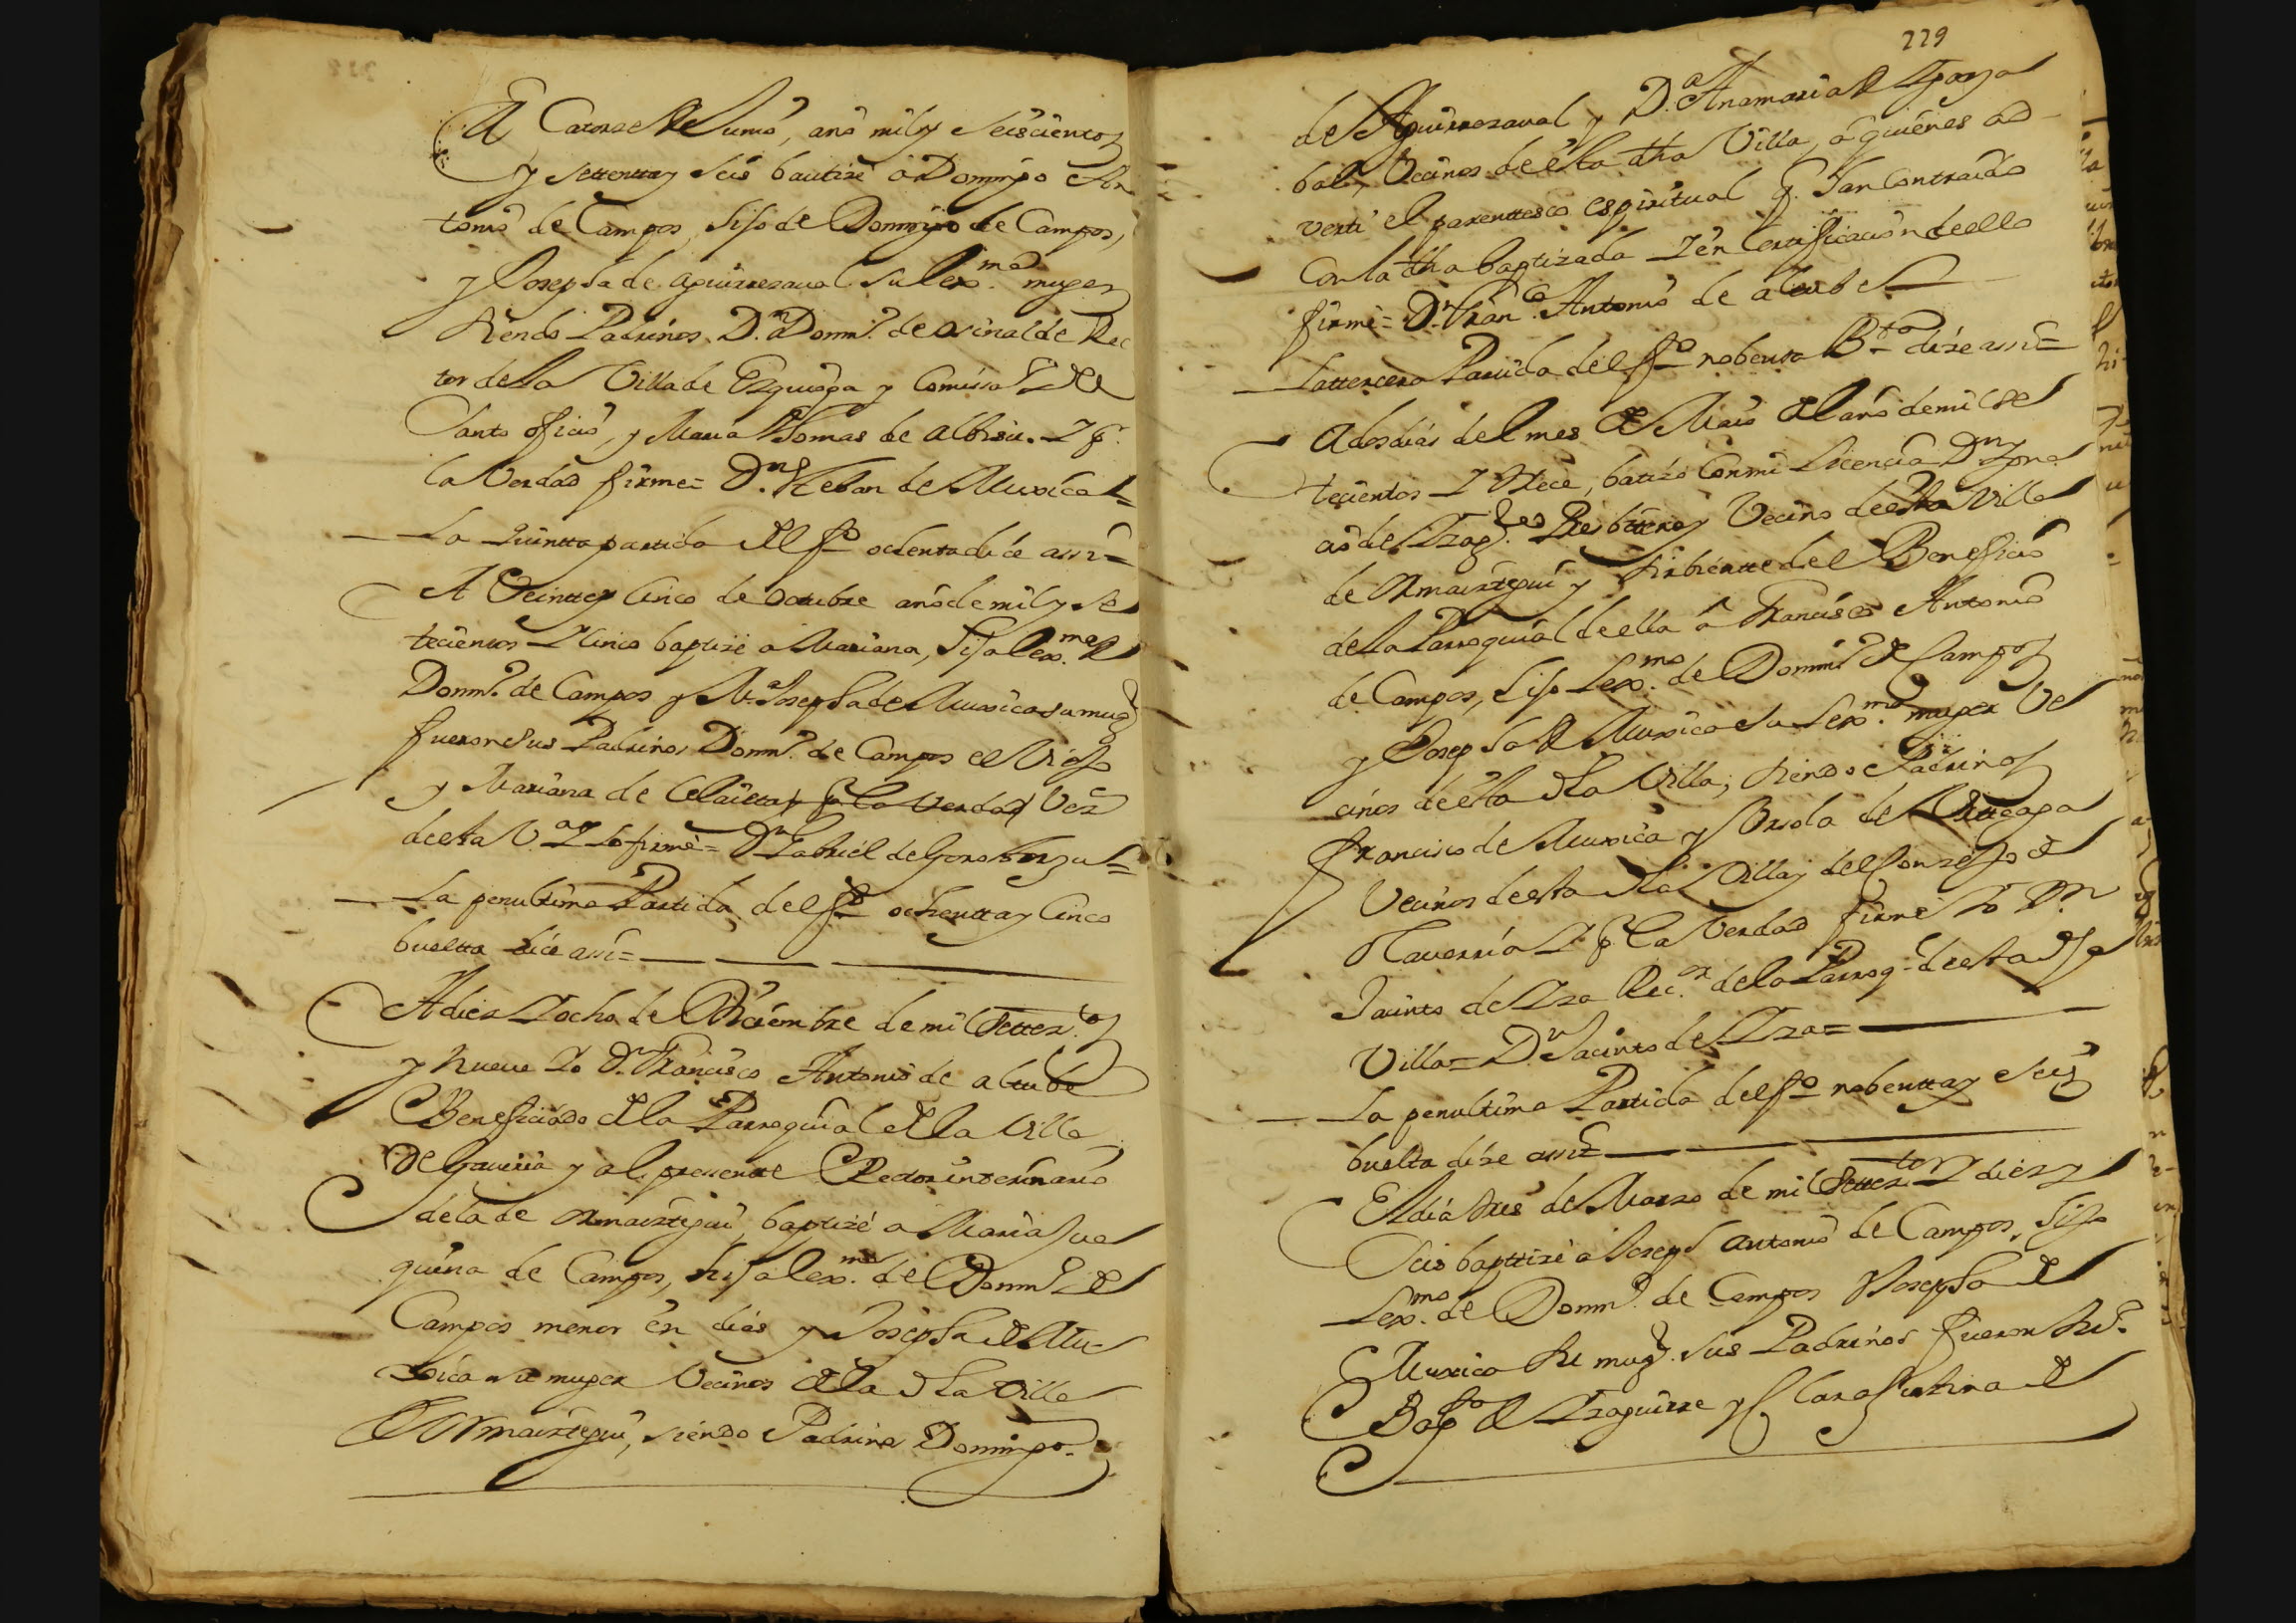 A Catorze de Junio, año mil y Seiscientos
y settenta y Seis bautizé â Domingo An
tonio de Campos, hijo de Domingo de Campos,
y Josepha de aguirrezaval su lex.ma muger
siendo Padrinos D.n Dom.o de orinalde Rec
tor de la Villa de Ezquioga y Comissar.o del
Santo oficio, y Maria Thomas de albisu. Y p.r
la Verdad firme = D.n Esteban de Muxica =
La Quintta partida del f.o ochenta dice assi =
A Veintte y Cinco de octubre año de mil y se
tecientos y Cinco baptizé a Mariana, hija lex.ma de
Dom.o de Campos y M.a Josepha de Muxica su mug.r
fueron sus Padrinos Dom.o de Campos el Viejo
y Mariana de Olaeta y p.r la Verdad Vez.s
de esta V.a y lo firmé = D.n Gabriel de Gorostorzu =
La penultima Partida del f.o ochentta y Cinco
buelta dice assi =
A diez y ocho de Diciembre de mil Settez.tos
y nueve Yo D.n Francisco Antonio de altube
Beneficiado de la Parroquial de la Villa
de Gaviria y al presente Rector interinario
de la de ormaiztegui, baptizé a Maria Joa
quina de Campos, hija lex.ma de Dom.o de
Campos menor en dias y Josepha de Mu
xica su muger Vecinos de la dha Villa
de ormaiztegui, siendo Padrinos Domingo
229
de Aguirrezaval y D.a Anamaria de
bal, Vecinos de esta dha Villa, â quienes ad
verti el parenttesco espiritual q. han Contraido
Con la dha baptizada Y en Certificacion de ello
firmé = D.n Fran.co Antonio de altube
La ttercera Partida del f.o nobenta B.ta dize assi =
A dos dias del mes de Maio del año de mil se
tecientos y Trece, batizó Con mi Licencia D.n Igna
cio de Presbittero y Vecino de esta Villa
de Ormaiztegui y Sirbientte del Beneficio
de la Parroquial de ella â Francisco Antonio
de Campos, hijo Lex.mo de Dom.o de Campos
y Josepha de Muxica su Lex.ma muger Ve
cinos de esta dha Villa, siendo Padrinos
Francisco de Muxica y Ursola de Artteaga
Vecinos de esta dha Villa y del Conzejo de
Gaverria Y p.r la Verdad firmé Yo D.n
Jacinto de Yza Rec.or de la Parroq.l de esta dha
Villa = D.n Jacinto de Yza =
La penultima Partida del f.o nobentta y Seis
buelta dize assi =
El dia tres de Marzo de mil Settez.tos Y diez y
Seis bapttizé a Joseph Antonio de Campos, hijo
Lex.mo de Dom.o de Campos Y Josepha de
Muxica su mug.r. Sus Padrinos fueron Ju.o
Bap.ta de Yzaguirre y Clara de